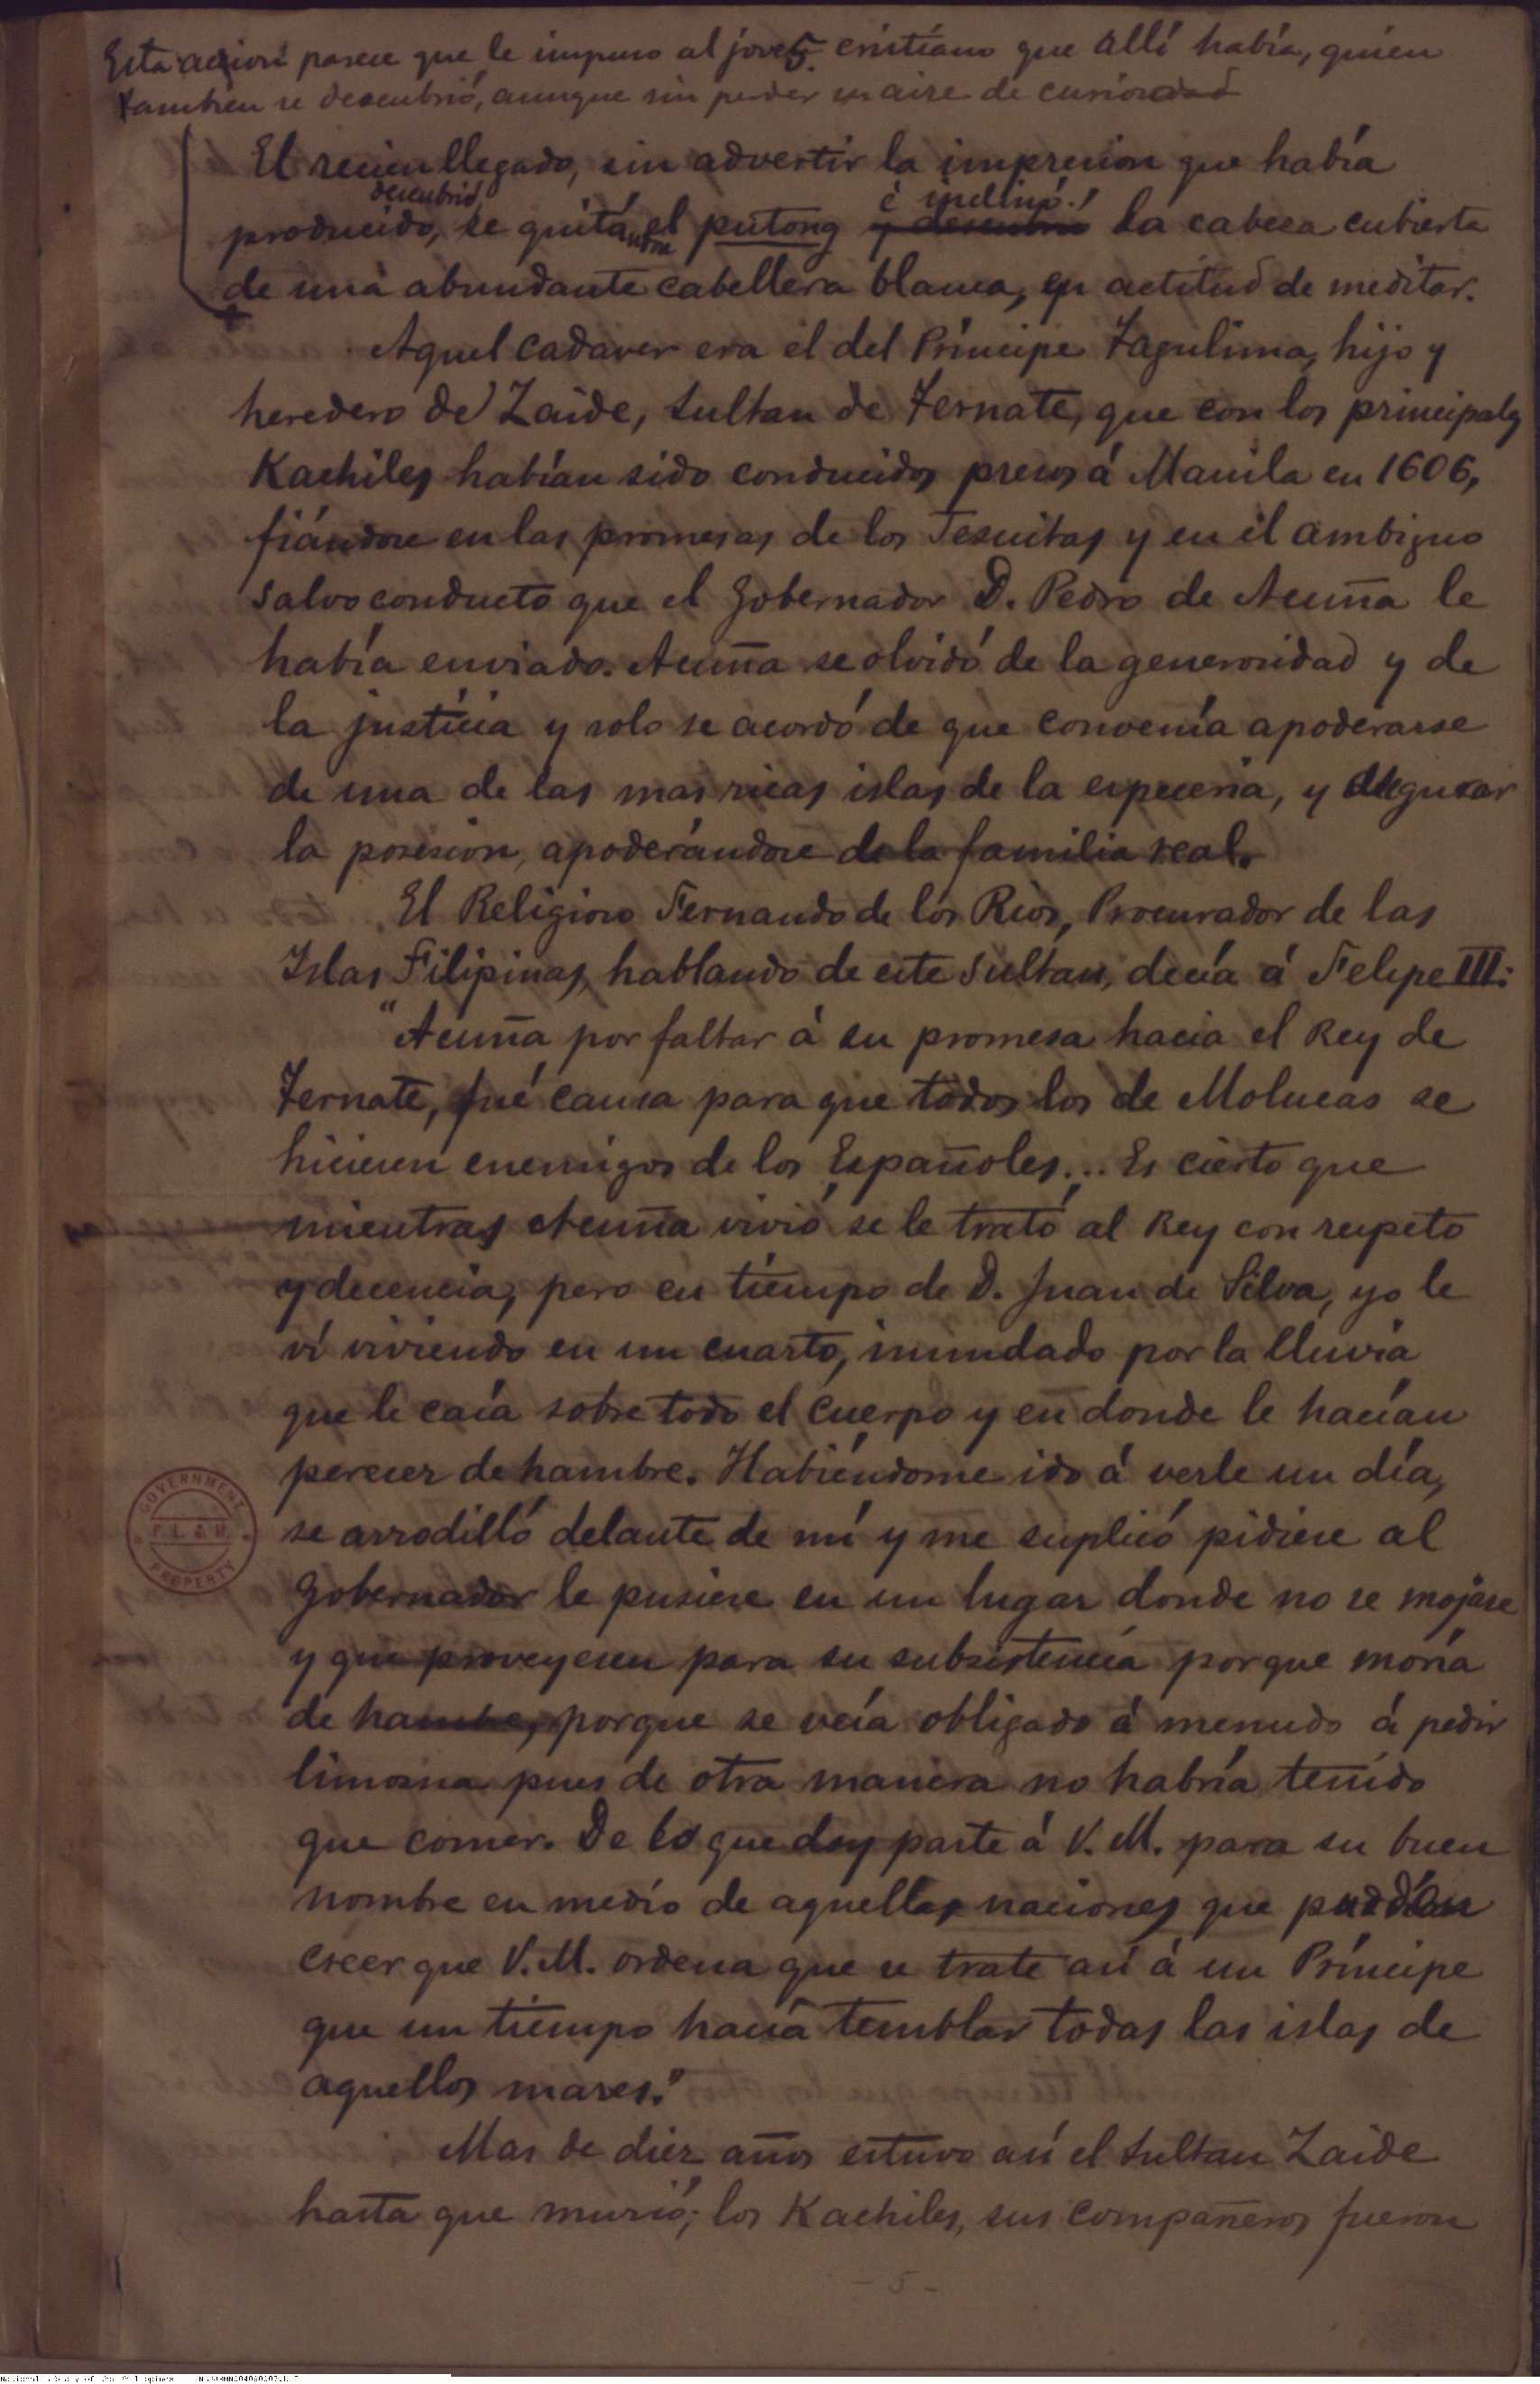 Esta acción parece que le impuso al joven cristiano que allí había, quien
5.
tambien se descubrió, aunque sin perder su aire de curiosidad
El recien llegado, sin advertir la impresion que había
descubrió, é inclinó
producido, se quitándose el putong y descubrió la cabeza cubierta
de una abundante cabellera blanca, en actitud de meditar.
Aquel cadaver era él del Príncipe Tagulima, hijo y
heredero de Zaide, sultan de Ternate, que con los principales
Kachiles habían sido conducidos presos á Manila en 1606,
fiándose en las promesas de los Jesuitas y en el ambiguo
salvoconducto que el Gobernador D. Pedro de Acuña le
había enviado. Acuña se olvidó de la generosidad y de
la justicia y solo se acordó de que convenía apoderarse
de una de las mas ricas islas de la especeria, y asegurar
la posesion, apoderándose de la familia real.
El Religioso Fernando de los Rios, Procurador de las
Islas Filipinas, hablando de este sultan, decía á Felipe III:
"Acuña por faltar á su promesa hacia el Rey de
Ternate, fué causa para que todos los de Molucas se
hiciesen enemigos de los Españoles... Es cierto que
mientras Acuña vivió se le trató al Rey con respeto
y decencia, pero en tiempo de D. Juan de Silva, yo le
ví viviendo en un cuarto, inundado por la lluvia
que le caía sobre todo el cuerpo y en donde le hacían
perecer de hambre. Habiéndome ido á verle un día,
se arrodilló delante de mí y me suplicó pidiese al
Gobernador le pusiese en un lugar donde no se mojase
y que proveyesen para su subsistencia porque moría
de hambre, porque se veía obligado á menudo á pedir
limosna pues de otra manera no habría tenido
que comer. De lo que doy parte á V. M. para su buen
nombre en medio de aquellas naciones que podrían
creer que V. M. ordena que se trate así á un Príncipe
que un tiempo hacía temblar todas las islas de
aquellos mares."
Mas de diez años estuvo así el sultan Zaide
hasta que murió; los Kachiles, sus compañeros fueron
- 5 -
GOVERNMENT
P. L. & M.
PROPERTY